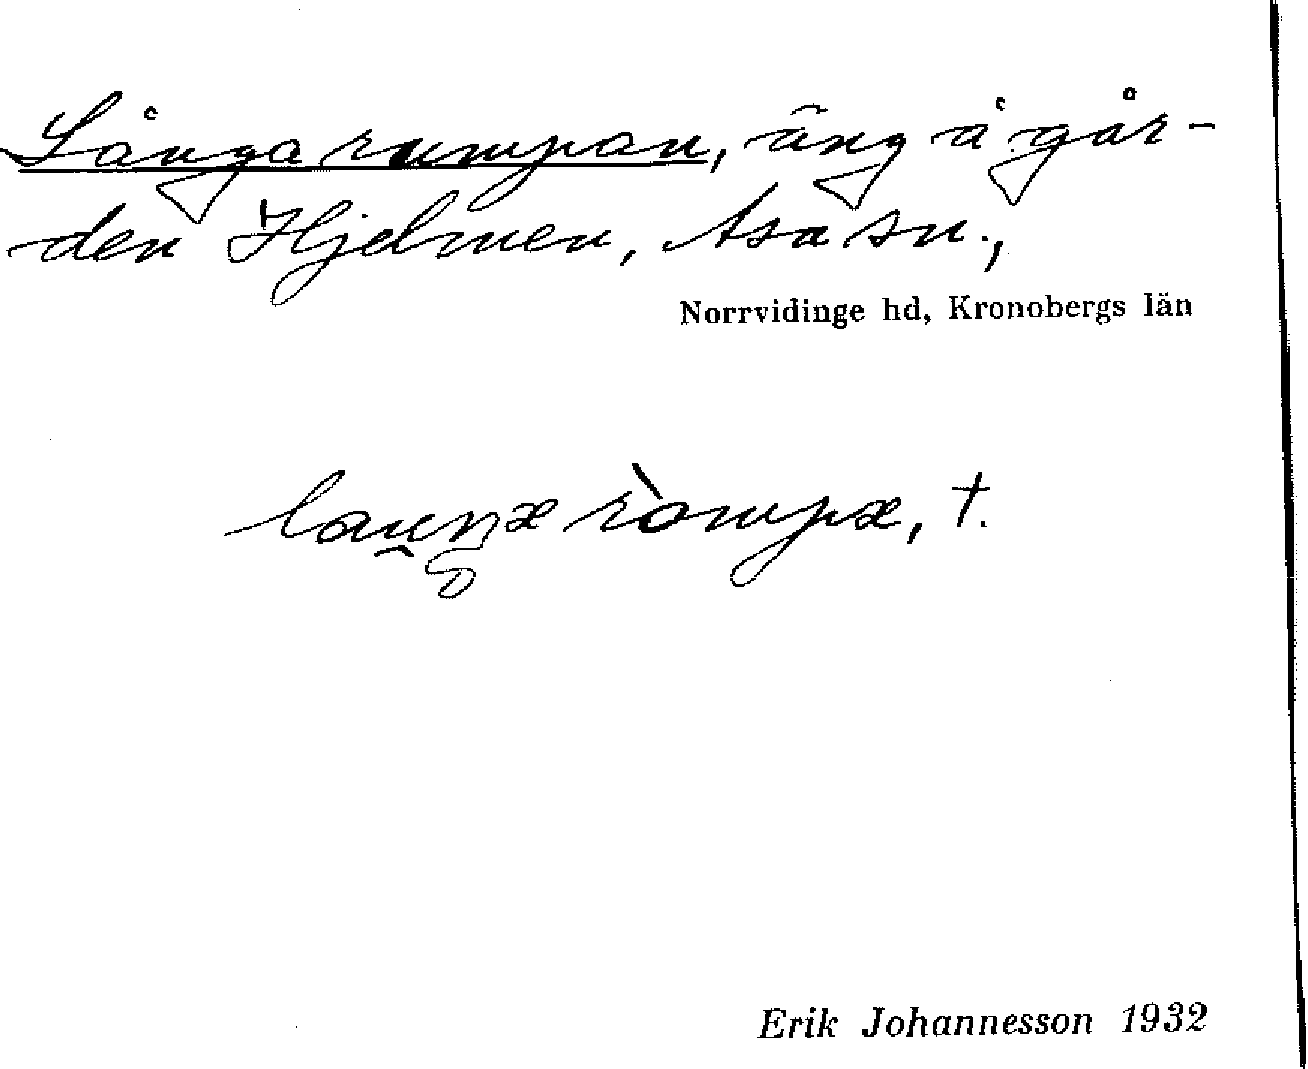 Långa rumpan, äng å går-
den Hjelmen, Asa sn.,
Norrvidinge hd, Kronobergs län
lau̯ŋx ròmpx, †.
Erik Johannesson 1932